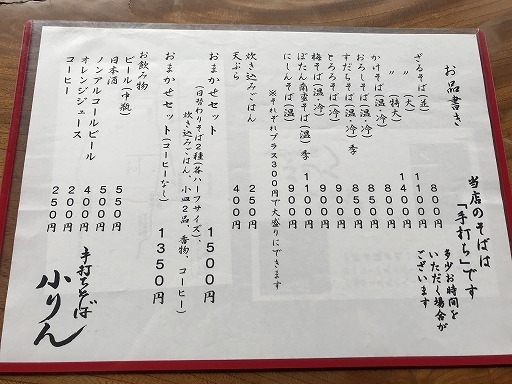 お品書き
当店のそばは
「手打ち」です
多少お時間を
いただく場合が
ございます
ざるそば(並) 800円
〃 (大) 1100円
〃 (特大) 1400円
かけそば(温・冷) 800円
おろしそば(温・冷) 850円
すだちそば(温・冷)季 850円
とろろそば(温・冷) 950円
梅そば(温・冷) 900円
ぼたん南蛮そば(温)季 1100円
にしんそば(温) 900円
※それぞれプラス300円で大盛りにできます
炊き込みごはん 250円
天ぷら 400円
おまかせセット 1500円
(日替わりそば2種(各ハーフサイズ)、
炊き込みごはん、小皿2品、香物、コーヒー)
おまかせセット(コーヒーなし) 1350円
お飲み物
ビール(中瓶) 550円
日本酒 500円
ノンアルコールビール 400円
オレンジジュース 200円
コーヒー 250円
手打ちそば
小りん